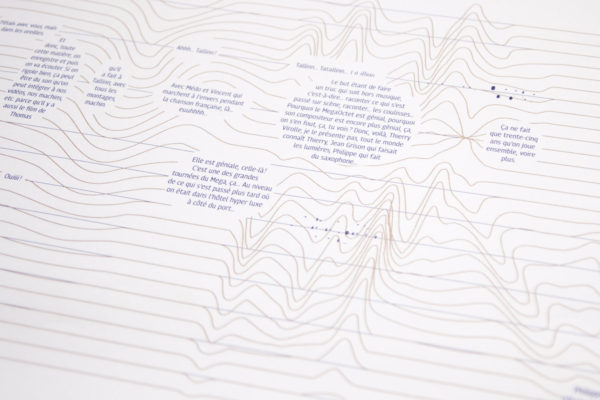 J'étais avec vous, mais
dans les oreilles
Et
donc, toute
cette matière, on
enregistre et puis
on va écouter si on
rigole bien, ça peut
être du son qu'on
peut intégrer à nos
vidéos, nos machins,
etc. parce qu'il y a
aussi le film de
Thomas
qu'il
a fait à
Tallinn, avec
tous les
montages
machin
Ahhh.. Tallinn!
Avec Médo et Vincent qui
marchent à l'envers pendant
la chanson française, là..
euuhhhh..
Tallinn.. Tatallinn..
Le but étant de faire
un truc qui soit hors musique,
c'est-à-dire.. raconter ce qui s'est
passé sur scène, raconter.. les coulisses..
Pourquoi le MegaOctet est génial, pourquoi
son compositeur est encore plus génial, ça,
on s'en fout, ça, tu vois ? Donc, voilà, Thierry
Virolle, je le présente pas, tout le monde
connaît Thierry, Jean Grison qui faisait
les lumières, Philippe qui fait
du saxophone..
Ça ne fait
que trente-cinq
ans qu'on joue
ensemble, voire
plus.
Elle est géniale, celle-là!
C'est une des grandes
tournées du Mega, ça.. Au niveau
de ce qui s'est passé plus tard où
on était dans l'hôtel hyper luxe
à côté du port..
Ouiii!